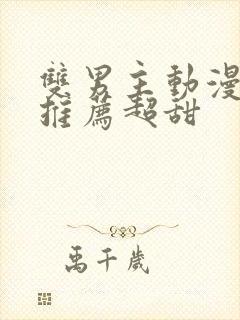 雙男主動漫
推薦超甜
禹千歲